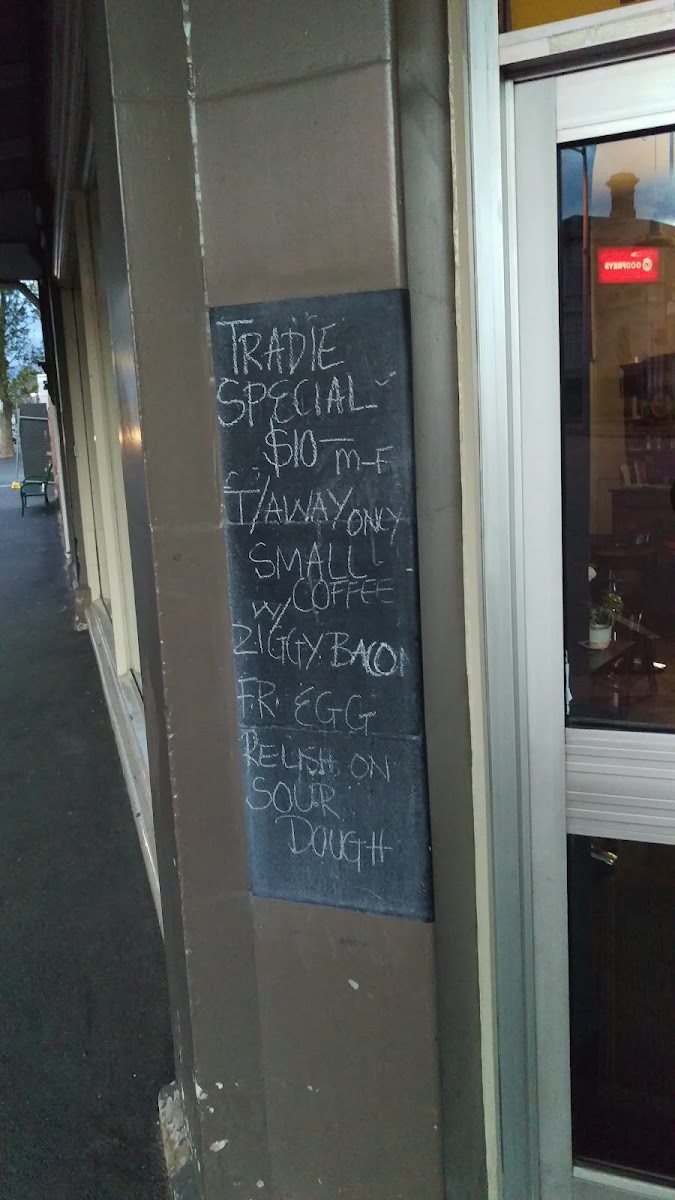 TRADIE
SPECIAL
$10— M-F
T/AWAY ONLY
SMALL
COFFEE
W/
ZIGGY BACON
FR. EGG
RELISH ON
SOUR
DOUGH
GODFREYS